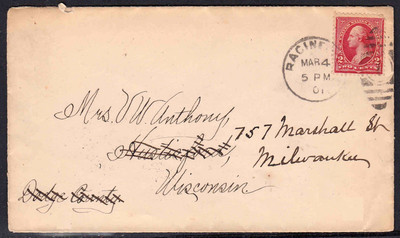 RACINE
MAR 4
5 PM
01
2 2
TWO CENTS
Mrs. V W. Anthony,
757 Marshall St
Milwaukee
Wisconsin
Dodge County